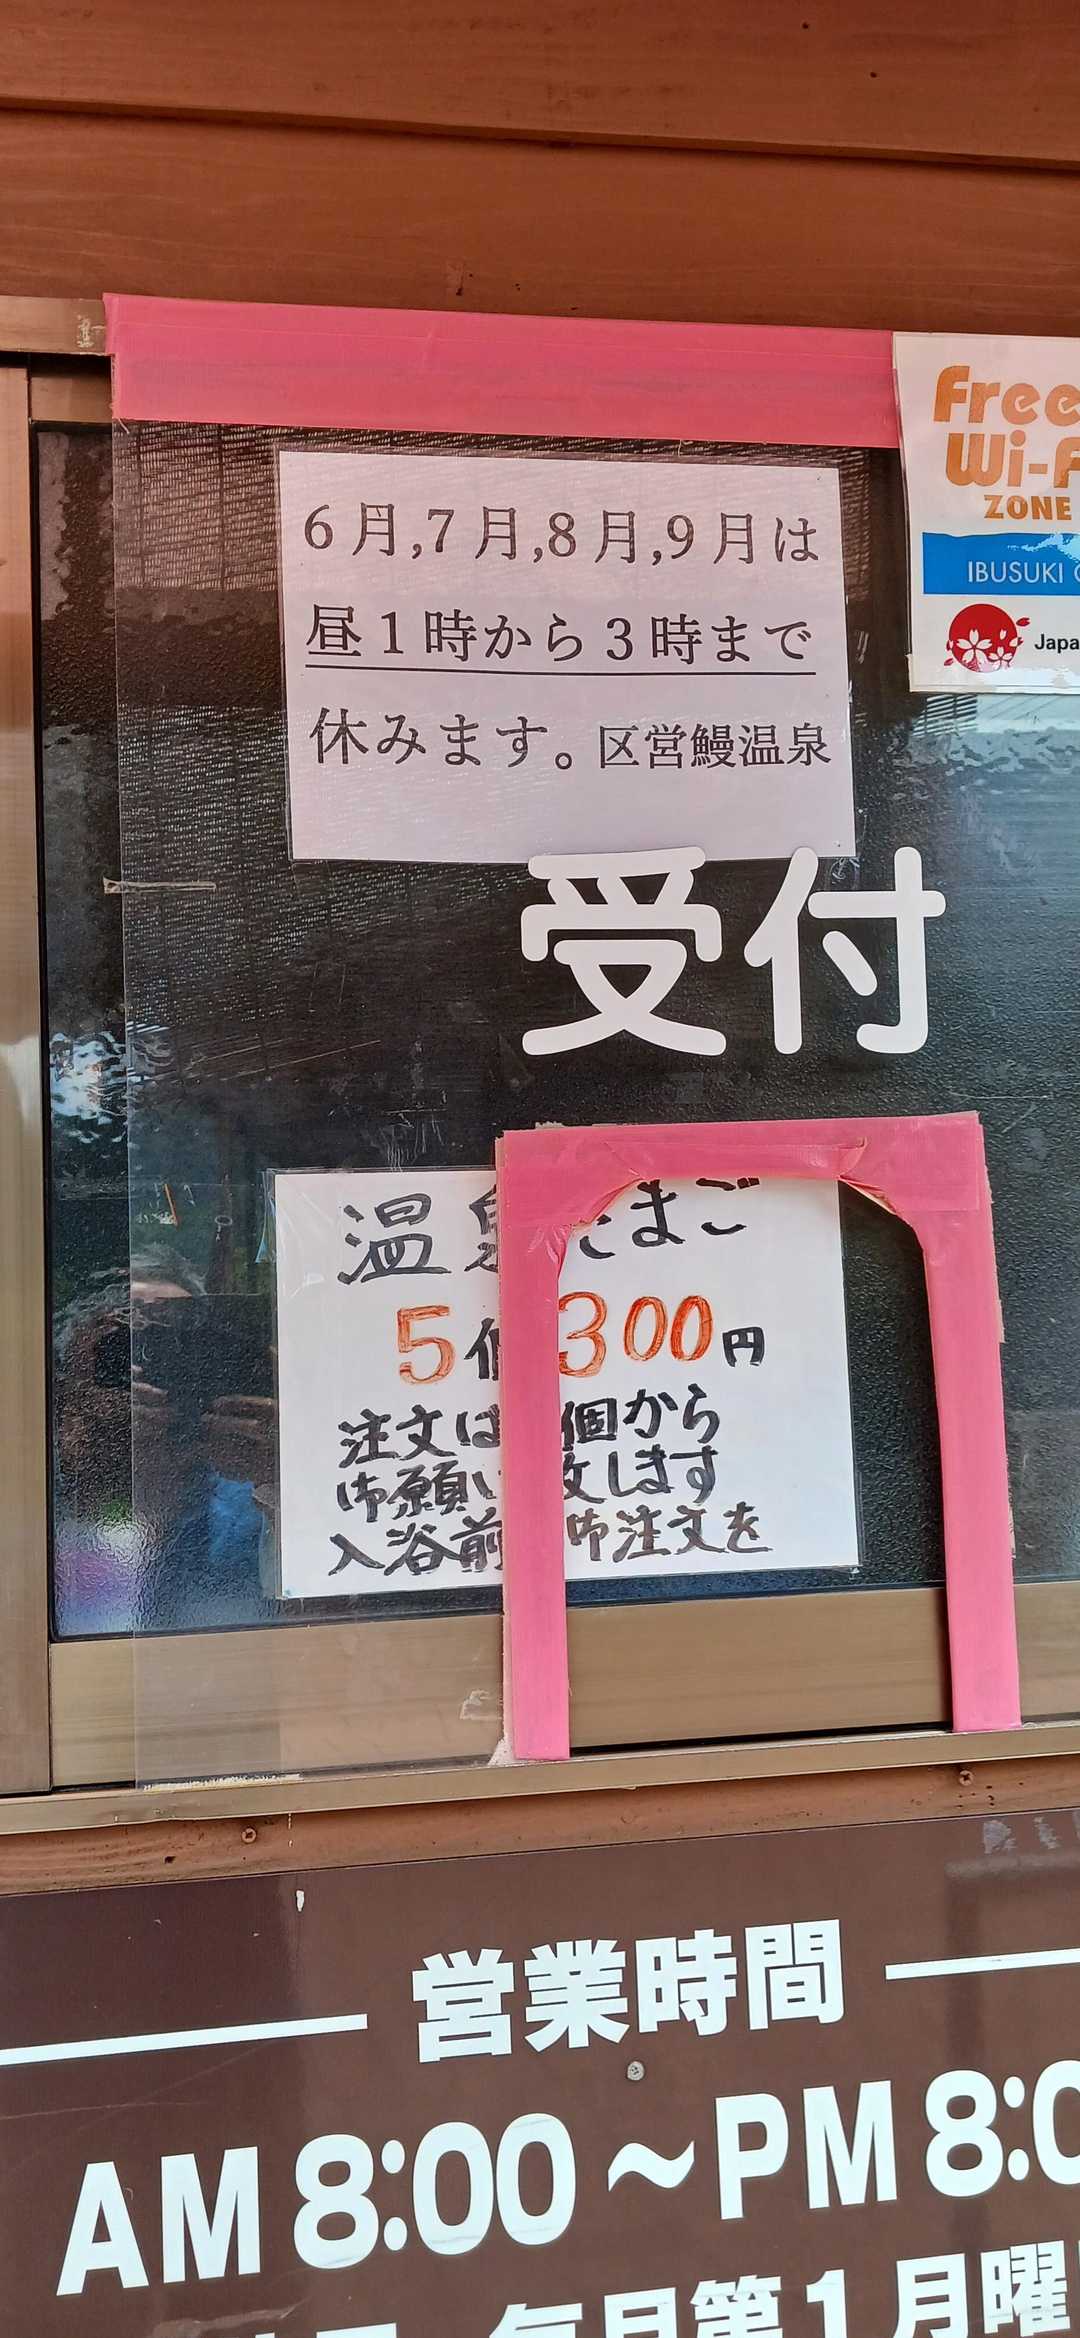 6月,7月,8月,9月は
昼1時から3時まで
休みます。区営鰻温泉
Free
Wi-F
ZONE
IBUSUKI
Japa
受付
温泉たまご
5個300円
注文は 個から
御願い致します
入浴前 御注文を
営業時間
AM8:00~PM8:0
毎月第1月曜